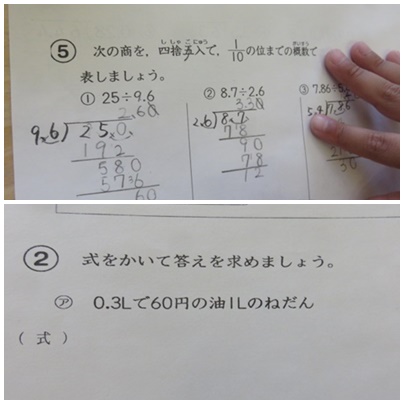 ⑤ 次の商を、四捨五入で、1/10の位までの概数で
表しましょう。
① 25÷9.6 ② 8.7÷2.6 ③ 7.86÷5.
2.60 3.30
9.6)25.0 2.6)8.7
192 78
580 90
576 78
60 12
30
② 式をかいて答えを求めましょう。
㋐ 0.3Lで60円の油1Lのねだん
(式)